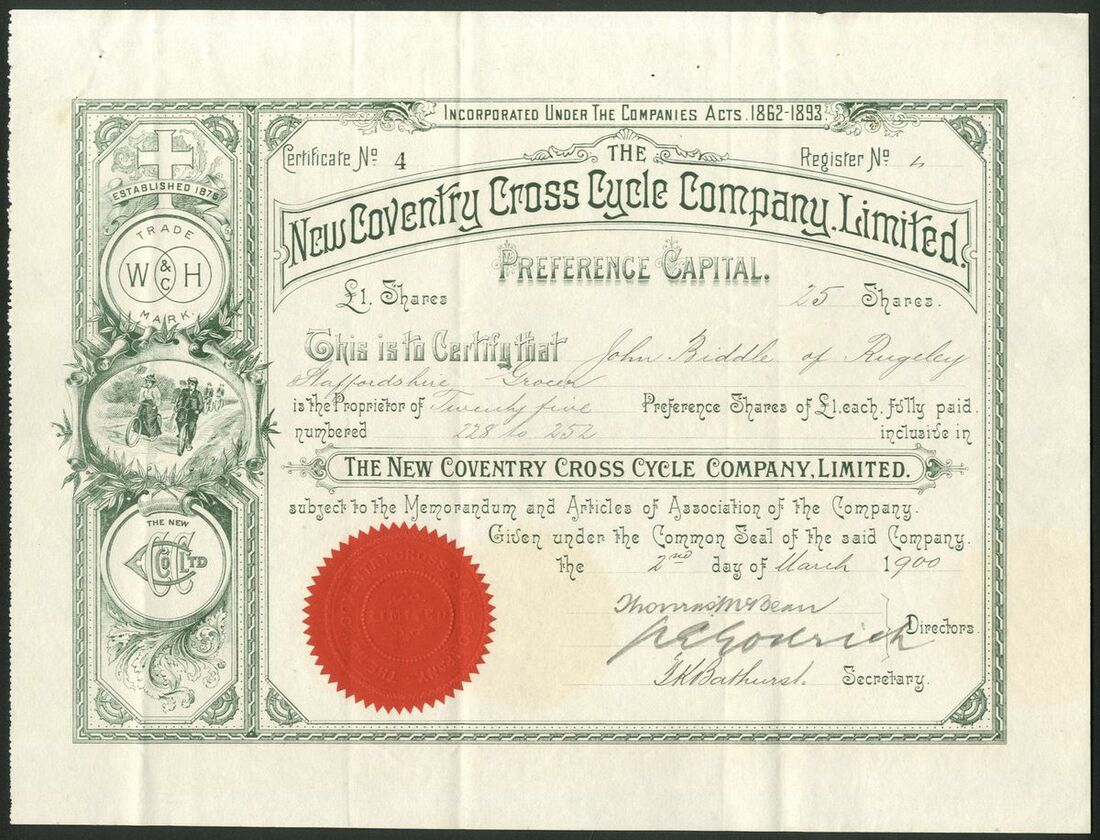 INCORPORATED UNDER THE COMPANIES ACTS. 1862-1893.
Certificate No. 4
Register No. 4
THE
NEW COVENTRY CROSS CYCLE COMPANY, LIMITED.
PREFERENCE CAPITAL.
£1. Shares
25 Shares.
This is to Certify that John Biddle of Rugeley
Staffordshire Grocer
is the Proprietor of Twenty five Preference Shares of £1. each, fully paid.
numbered 228 to 252 inclusive in
THE NEW COVENTRY CROSS CYCLE COMPANY, LIMITED.
subject to the Memorandum and Articles of Association of the Company.
Given under the Common Seal of the said Company.
the 2nd day of March 1900
Thomas McBean
Goodrich
Directors.
Bathurst. Secretary.
ESTABLISHED 1876
TRADE
W & Co H
MARK.
THE NEW
CCC Co LTD